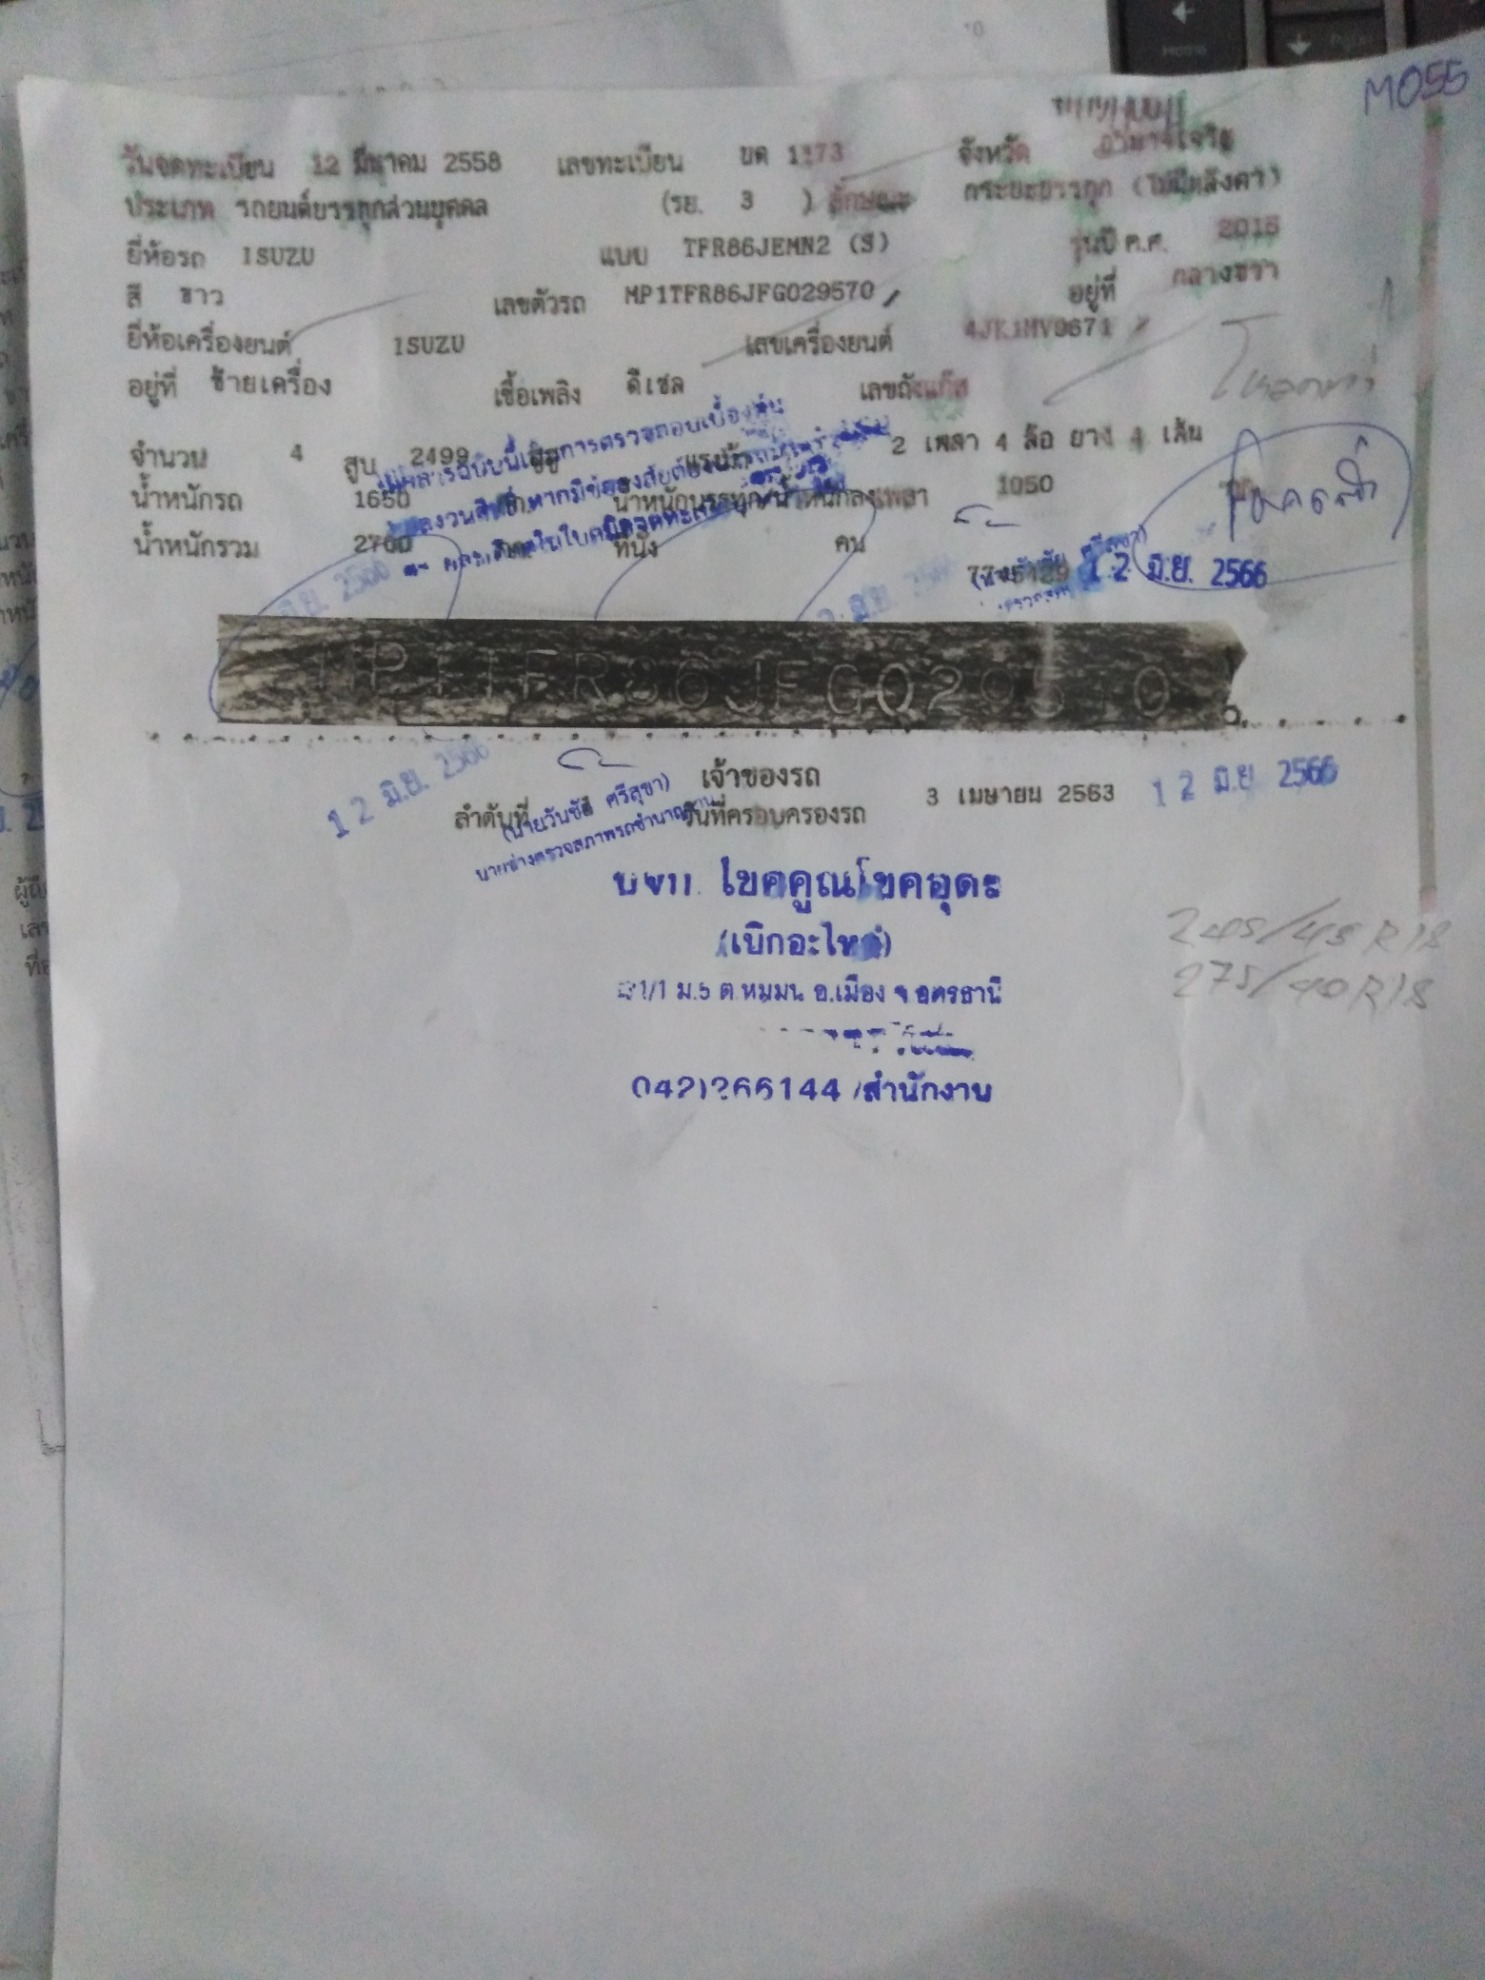 MO55
วันจดทะเบียน 12 มีนาคม 2558 เลขทะเบียน บด 1173 จังหวัด อำนาจเจริญ
ประเภท รถยนต์บรรทุกส่วนบุคคล (รย. 3 ) ลักษณะ กระบะบรรทุก (ไม่มีหลังคา)
ยี่ห้อรถ ISUZU แบบ TFR86JEMN2 (S) รุ่นปี ค.ศ. 2015
สี ขาว เลขตัวรถ MP1TFR86JFG029570 อยู่ที่ กลางขวา
ยี่ห้อเครื่องยนต์ ISUZU เลขเครื่องยนต์ 4JK1MV0671
อยู่ที่ ซ้ายเครื่อง เชื้อเพลิง ดีเซล เลขถังแก๊ส
จำนวน 4 สูบ 2499 ซีซี แรงม้า 2 เพลา 4 ล้อ ยาง 4 เส้น
น้ำหนักรถ 1650 น้ำหนักบรรทุก/น้ำหนักลงเพลา 1050
น้ำหนักรวม 2700 ที่นั่ง คน
12 มิ.ย. 2566
MP1TFR86JFG029570
12 มิ.ย. 2566 เจ้าของรถ
ลำดับที่ วันที่ครอบครองรถ 3 เมษายน 2563 12 มิ.ย. 2566
(นายวันชัย ศรีสุขา)
นายช่างตรวจสภาพรถชำนาญงาน
บจก. โชคคูณโชคอุดร
(เบิกอะไหล่)
ม.5 ต.หมูม่น อ.เมือง จ.อุดรธานี
042)266144 /สำนักงาน
245/45 R18
275/40 R18